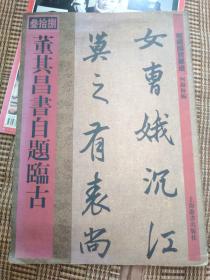 叁拾捌
董其昌書自題臨古
女曹娥沉江
莫之有表尚
上海辭書出版社